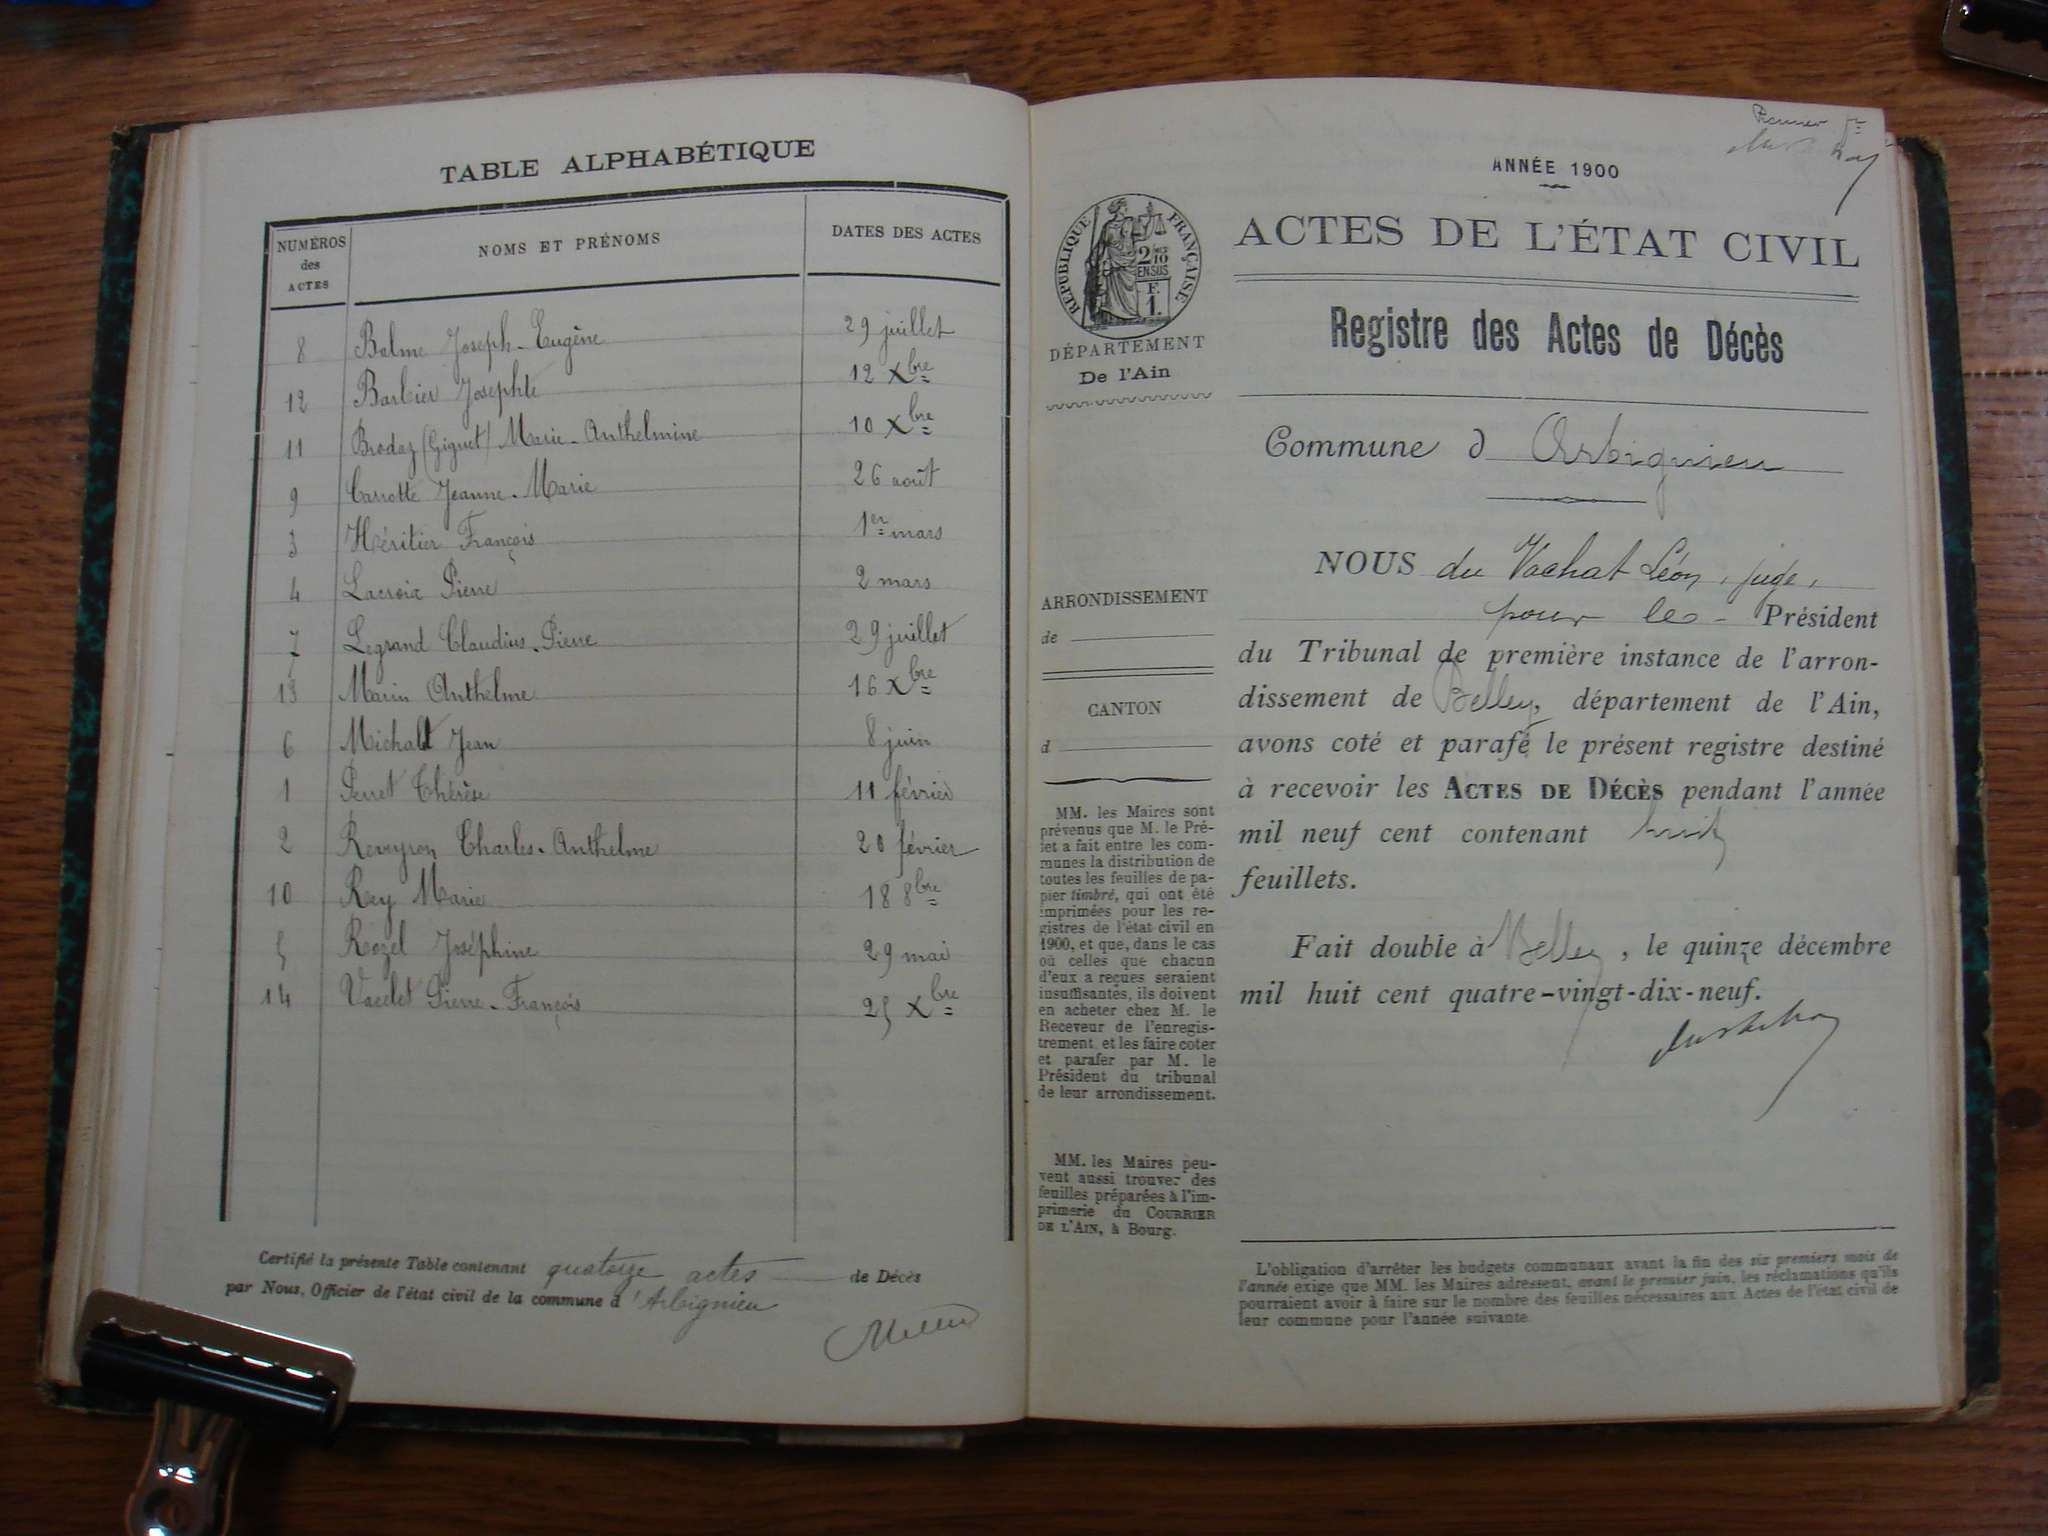 TABLE ALPHABÉTIQUE
NUMÉROS des ACTES
NOMS ET PRÉNOMS
DATES DES ACTES
8 Balme Joseph-Eugène 29 juillet
12 Barbier Josephte 12 Xbre
11 Brodaz (Giguet) Marie-Anthelmine 10 Xbre
9 Carrotte Jeanne-Marie 26 août
3 Héritier François 1er mars
4 Lacroix Pierre 2 mars
7 Legrand Claudius-Pierre 29 juillet
13 Marin Anthelme 16 Xbre
6 Michald Jean 8 juin
1 Perret Thérèse 11 février
2 Reveyron Charles-Anthelme 20 février
10 Rey Marie 18 8bre
5 Rozel Joséphine 29 mai
14 Vacelet Pierre-François 25 Xbre
Certifié la présente Table contenant quatorze actes de Décès
par Nous, Officier de l'état civil de la commune d'Arbignieu
Premier
ANNÉE 1900
RÉPUBLIQUE FRANÇAISE
2/10 EN SUS
F. 1.
DÉPARTEMENT
De l'Ain
ACTES DE L'ÉTAT CIVIL
Registre des Actes de Décès
Commune d Arbignieu
NOUS du Vachat Léon, juge,
pour le Président
du Tribunal de première instance de l'arron-
dissement de Belley, département de l'Ain,
avons coté et parafé le présent registre destiné
à recevoir les ACTES DE DÉCÈS pendant l'année
mil neuf cent contenant huit
feuillets.
Fait double à Belley, le quinze décembre
mil huit cent quatre-vingt-dix-neuf.
ARRONDISSEMENT
de
CANTON
d
MM. les Maires sont
prévenus que M. le Pré-
fet a fait entre les com-
munes la distribution de
toutes les feuilles de pa-
pier timbré, qui ont été
imprimées pour les re-
gistres de l'état civil en
1900, et que, dans le cas
où celles que chacun
d'eux a reçues seraient
insuffisantes, ils doivent
en acheter chez M. le
Receveur de l'enregis-
trement, et les faire coter
et parafer par M. le
Président du tribunal
de leur arrondissement.
MM. les Maires peu-
vent aussi trouver des
feuilles préparées à l'im-
primerie du COURRIER
DE L'AIN, à Bourg.
L'obligation d'arrêter les budgets communaux avant la fin des six premiers mois de
l'année exige que MM. les Maires adressent, avant le premier juin, les réclamations qu'ils
pourraient avoir à faire sur le nombre des feuilles nécessaires aux Actes de l'état civil de
leur commune pour l'année suivante.